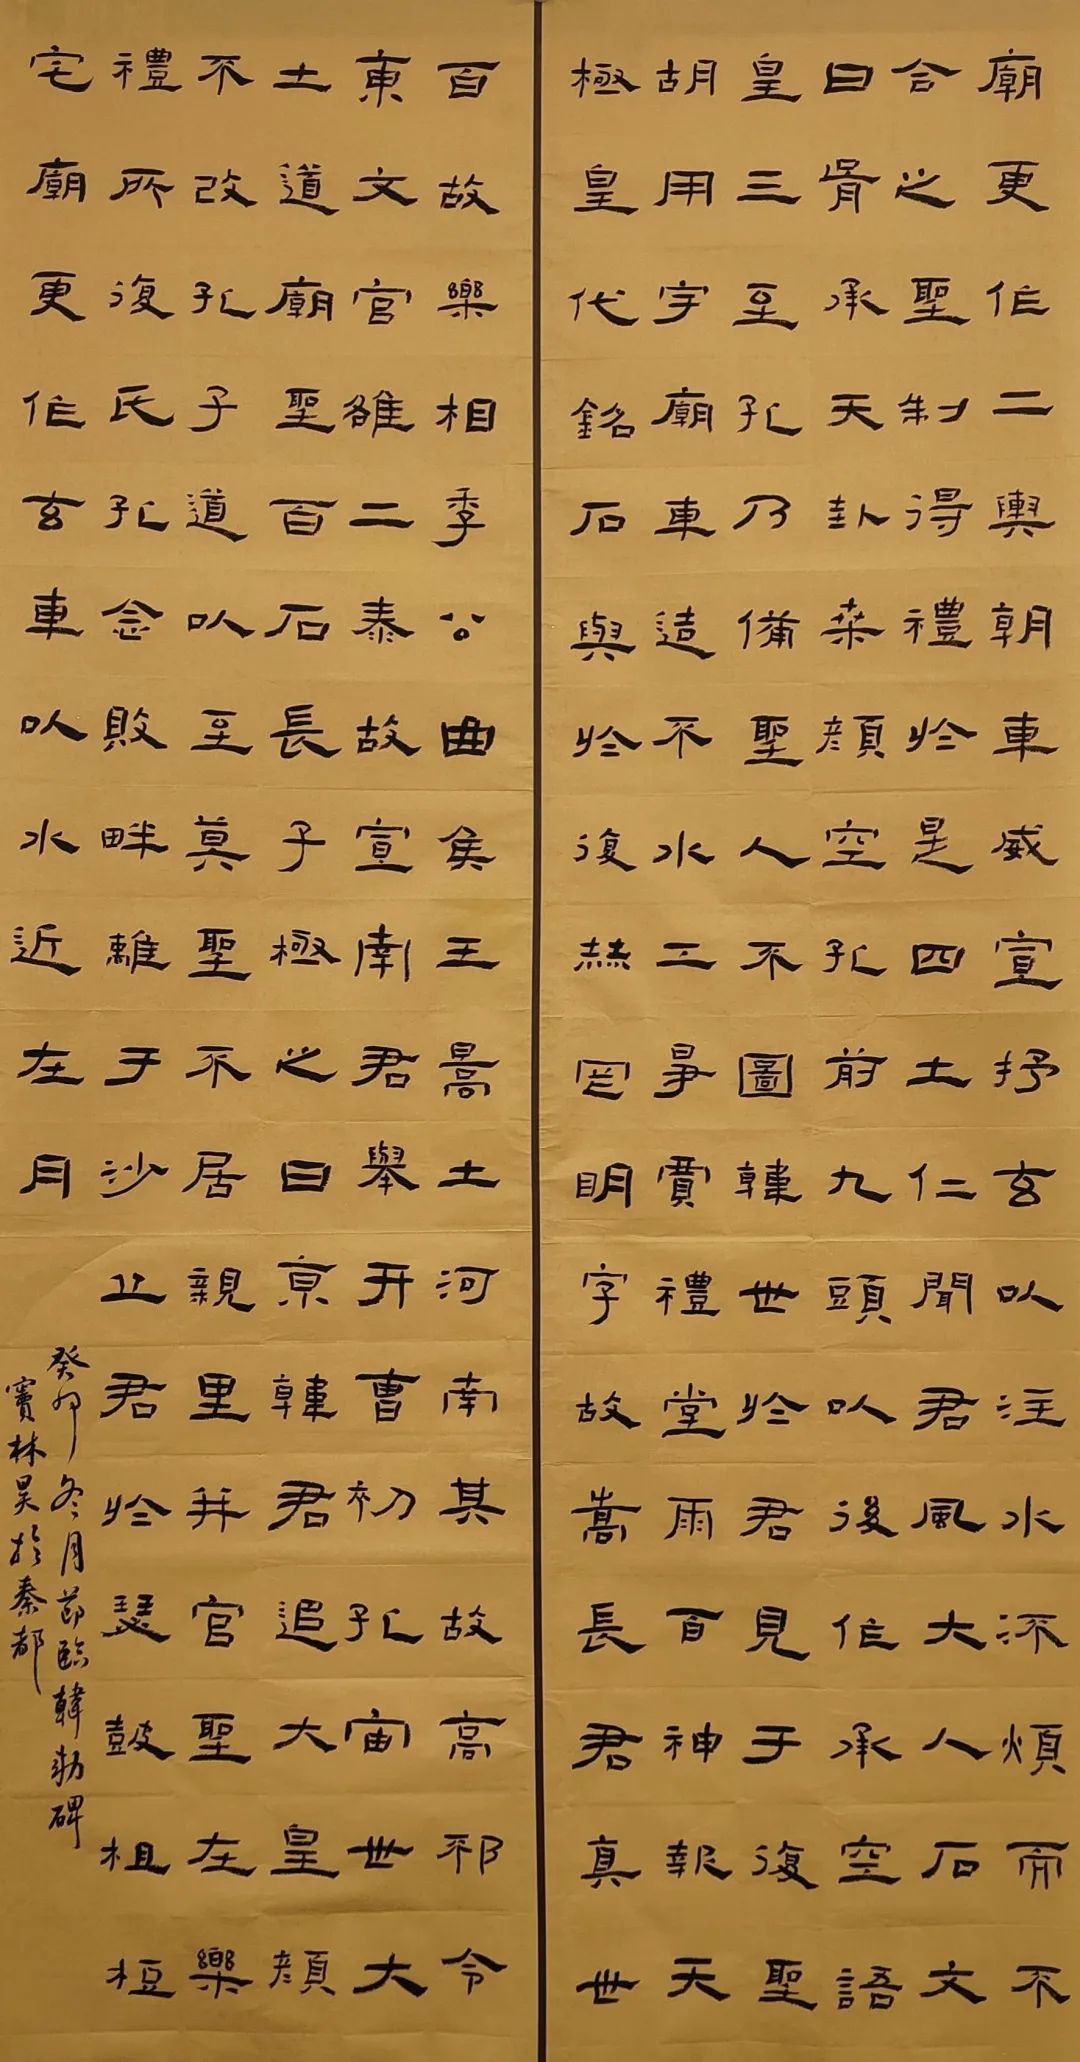 廟更作二輿朝車威宣抒玄以注水流煩而不
合之聖制得禮於是四土仁聞君風大人石文
曰胥承天卦桒顏空孔前九頭以後作承空語
皇三至孔乃備聖人不圖韓世於君見于復聖
胡用字廟車造不水工爭賈禮堂雨百神報天
極皇代銘石與於復赫罔明字故嵩長君真世
百故樂相季公曲侯王暠土河南其故高邪令
東文官雒二泰故宣南君舉开曹初孔宙世大
土道廟聖百石長子極之曰京韓君追大皇顏
不改孔子道以至莫聖不居親里并官聖在樂
禮所復氏孔念敗畔離于沙丘君於瑟鼓柤梪
宅廟更作玄車以水近在月
癸卯冬月節臨韓勑碑
竇林昊於秦都